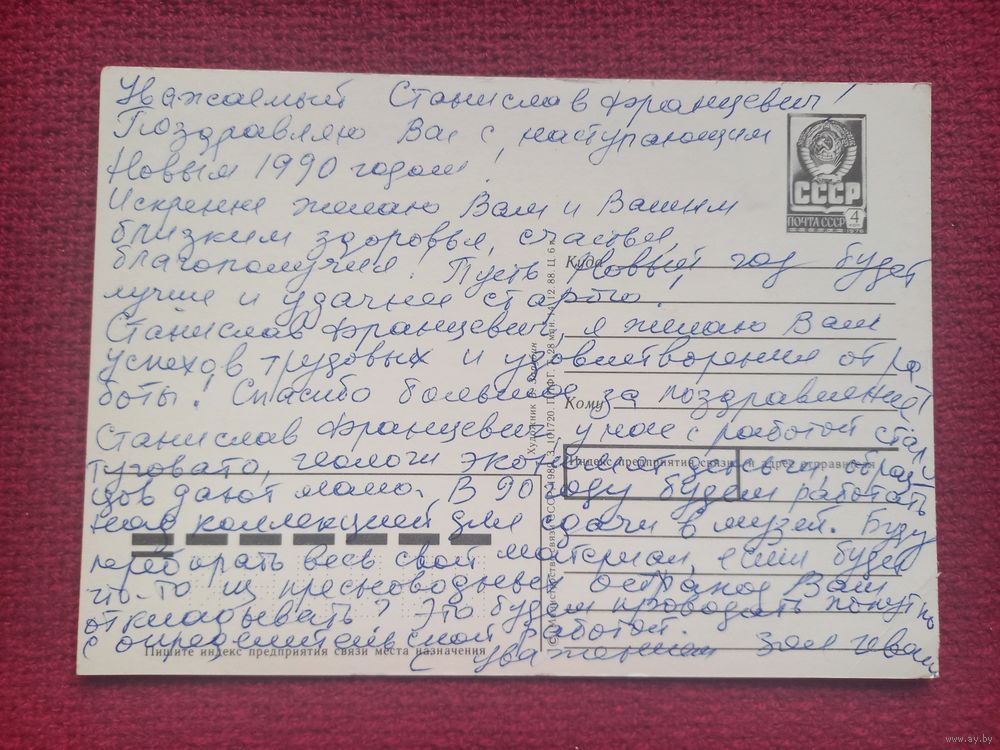 Уважаемый Станислав Францевич!
Поздравляю Вас с наступающим
Новым 1990 годом!
Искренне желаю Вам и Вашим
близким здоровья, счастья,
благополучия! Пусть Новый год будет
лучше и удачнее старого.
Станислав Францевич, я желаю Вам
успехов трудовых и удовлетворения от ра
боты! Спасибо большое за поздравления!
Станислав Францевич, у нас с работой стало
туговато, геологи экономят деньги, образ
цов дают мало. В 90 году будем работать
над коллекцией для сдачи в музей. Буду
перебирать весь свой материал, если будет
что-то из пресноводных остракод Вам
откладывать? Это будем проводить попутно
с определительской работой.
С уважением
СССР
ПОЧТА СССР 4
1976
Куда
Кому
Индекс предприятия связи и адрес отправителя
Пишите индекс предприятия связи места назначения
Художник
© Министерство связи СССР, 198 З. 101720. ППФГ. 28 12.88. Ц. 6 к.
www.ay.by